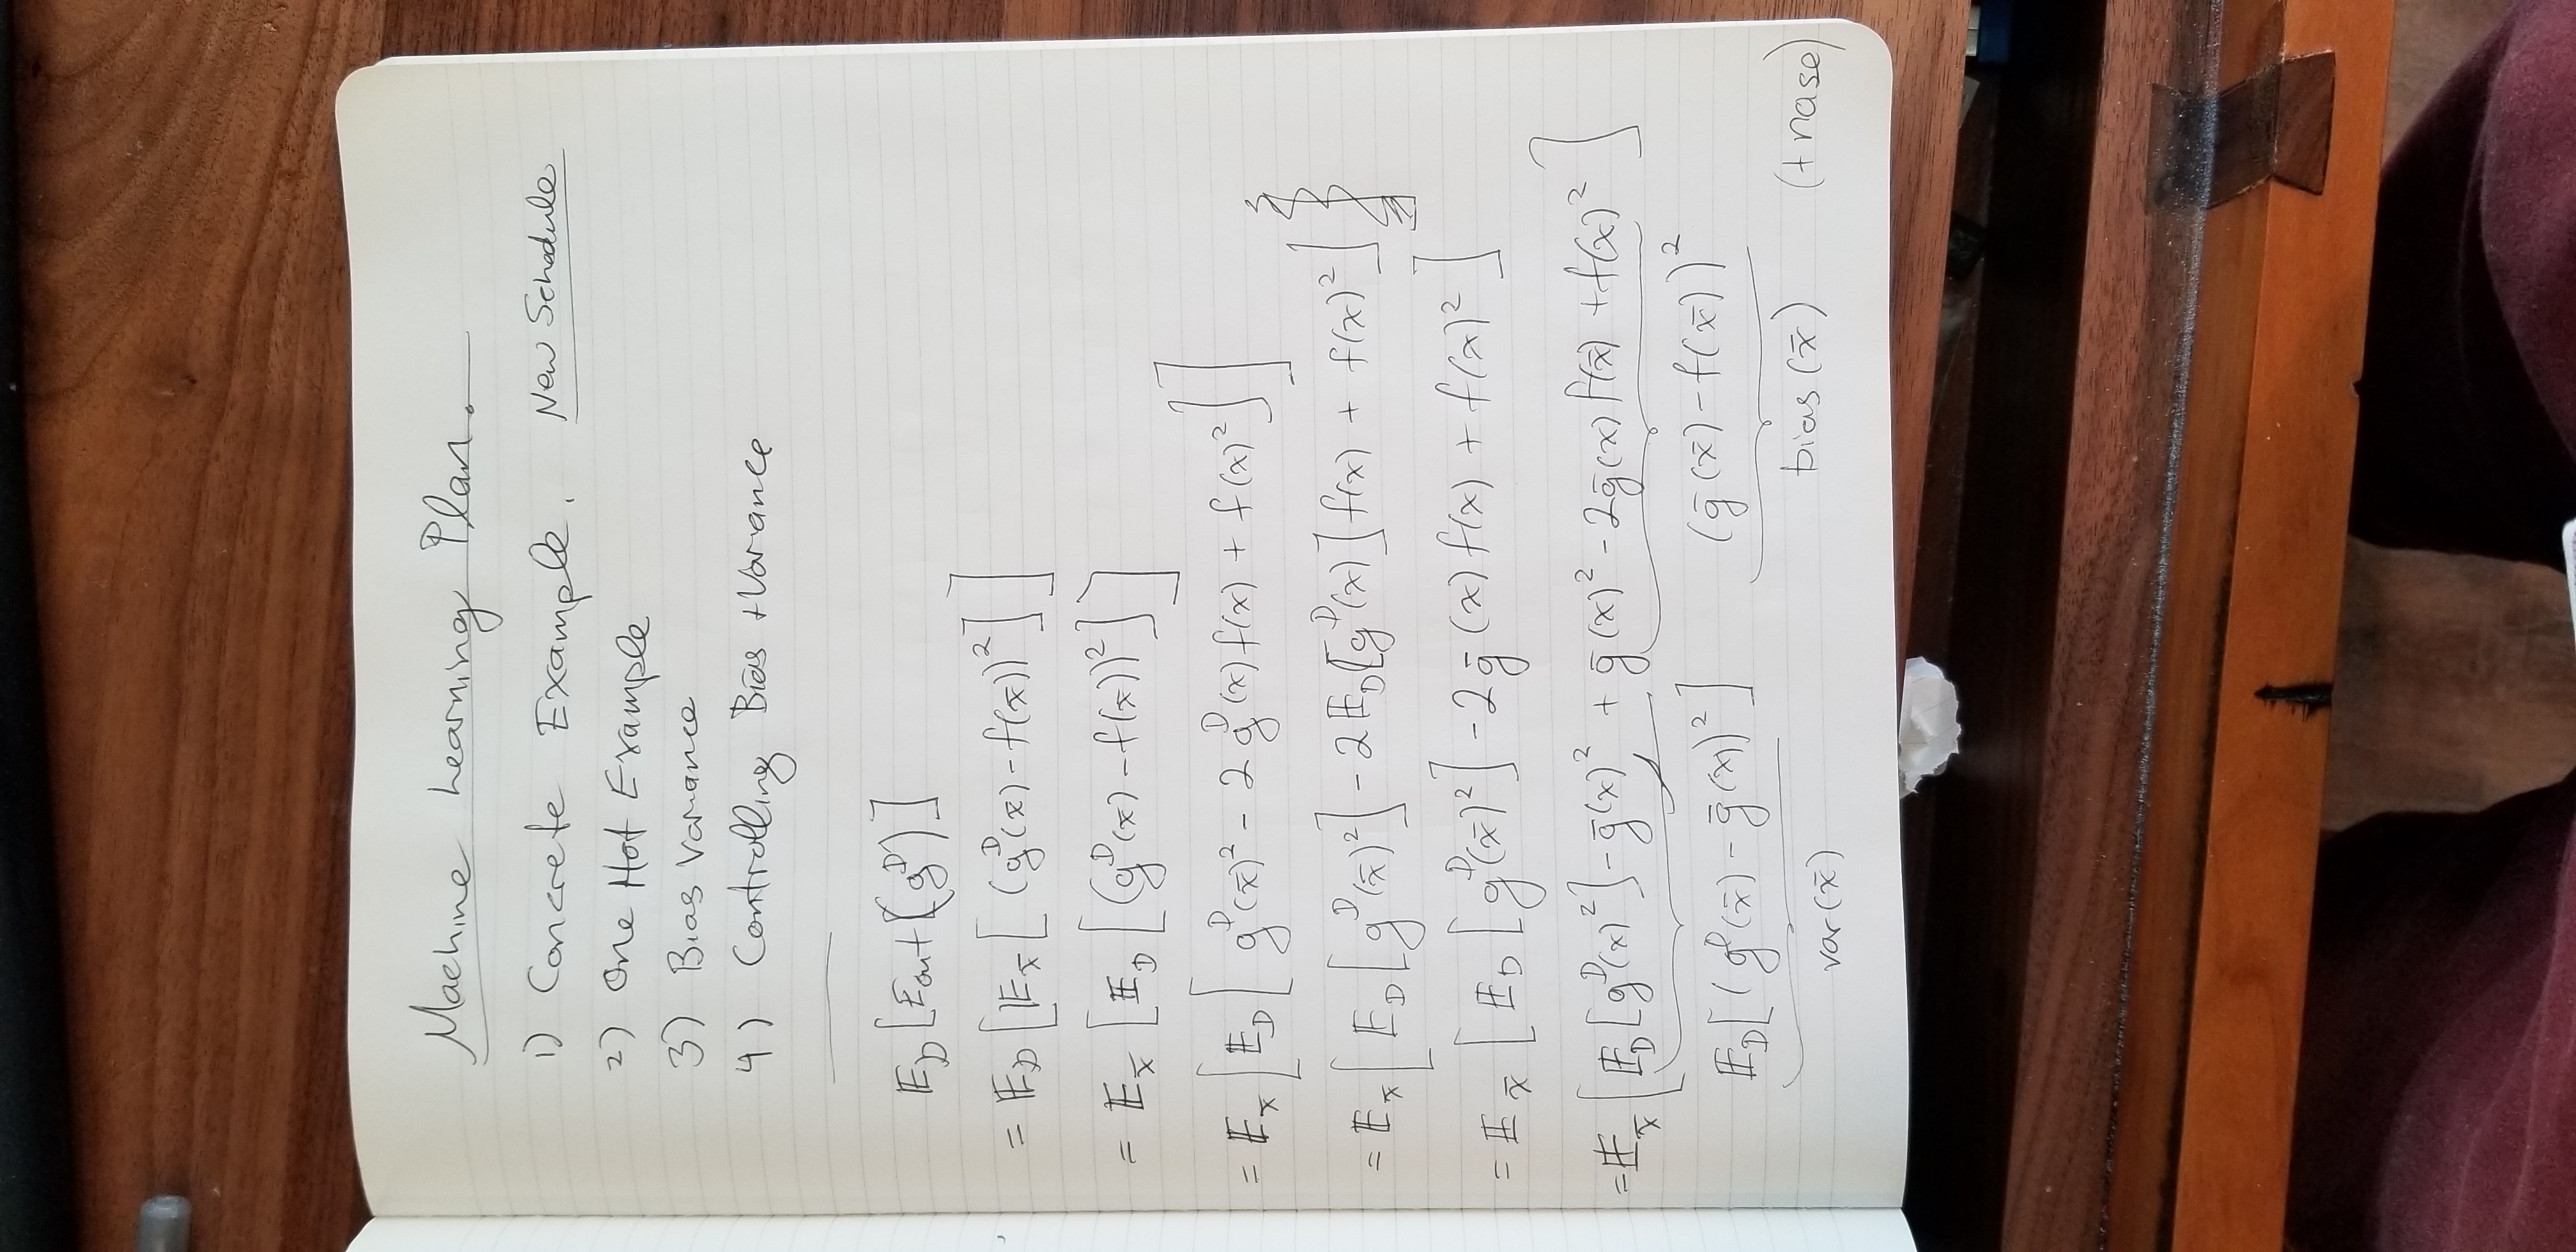 Machine Learning Plan.
1) Concrete Example. New Schedule
2) One Hot Example
3) Bias Variance
4) Controlling Bias + Variance
𝔼_D [E_out (g^D)]
= 𝔼_D [𝔼_x̄ [(g^D(x̄) - f(x̄))²]]
= 𝔼_x̄ [𝔼_D [(g^D(x̄) - f(x̄))²]]
= 𝔼_x̄ [𝔼_D [g^D(x̄)² - 2g^D(x̄)f(x̄) + f(x̄)²]]
= 𝔼_x̄ [𝔼_D [g^D(x̄)²] - 2𝔼_D[g^D(x̄)]f(x̄) + f(x̄)²]
= 𝔼_x̄ [𝔼_D [g^D(x̄)²] - 2ḡ(x̄)f(x̄) + f(x̄)²]
= 𝔼_x̄ [𝔼_D [g^D(x̄)²] - ḡ(x̄)² + ḡ(x̄)² - 2ḡ(x̄)f(x̄) + f(x̄)²]
𝔼_D[(g^D(x̄) - ḡ(x̄))²] (ḡ(x̄) - f(x̄))²
var(x̄) bias(x̄) (+ nose)